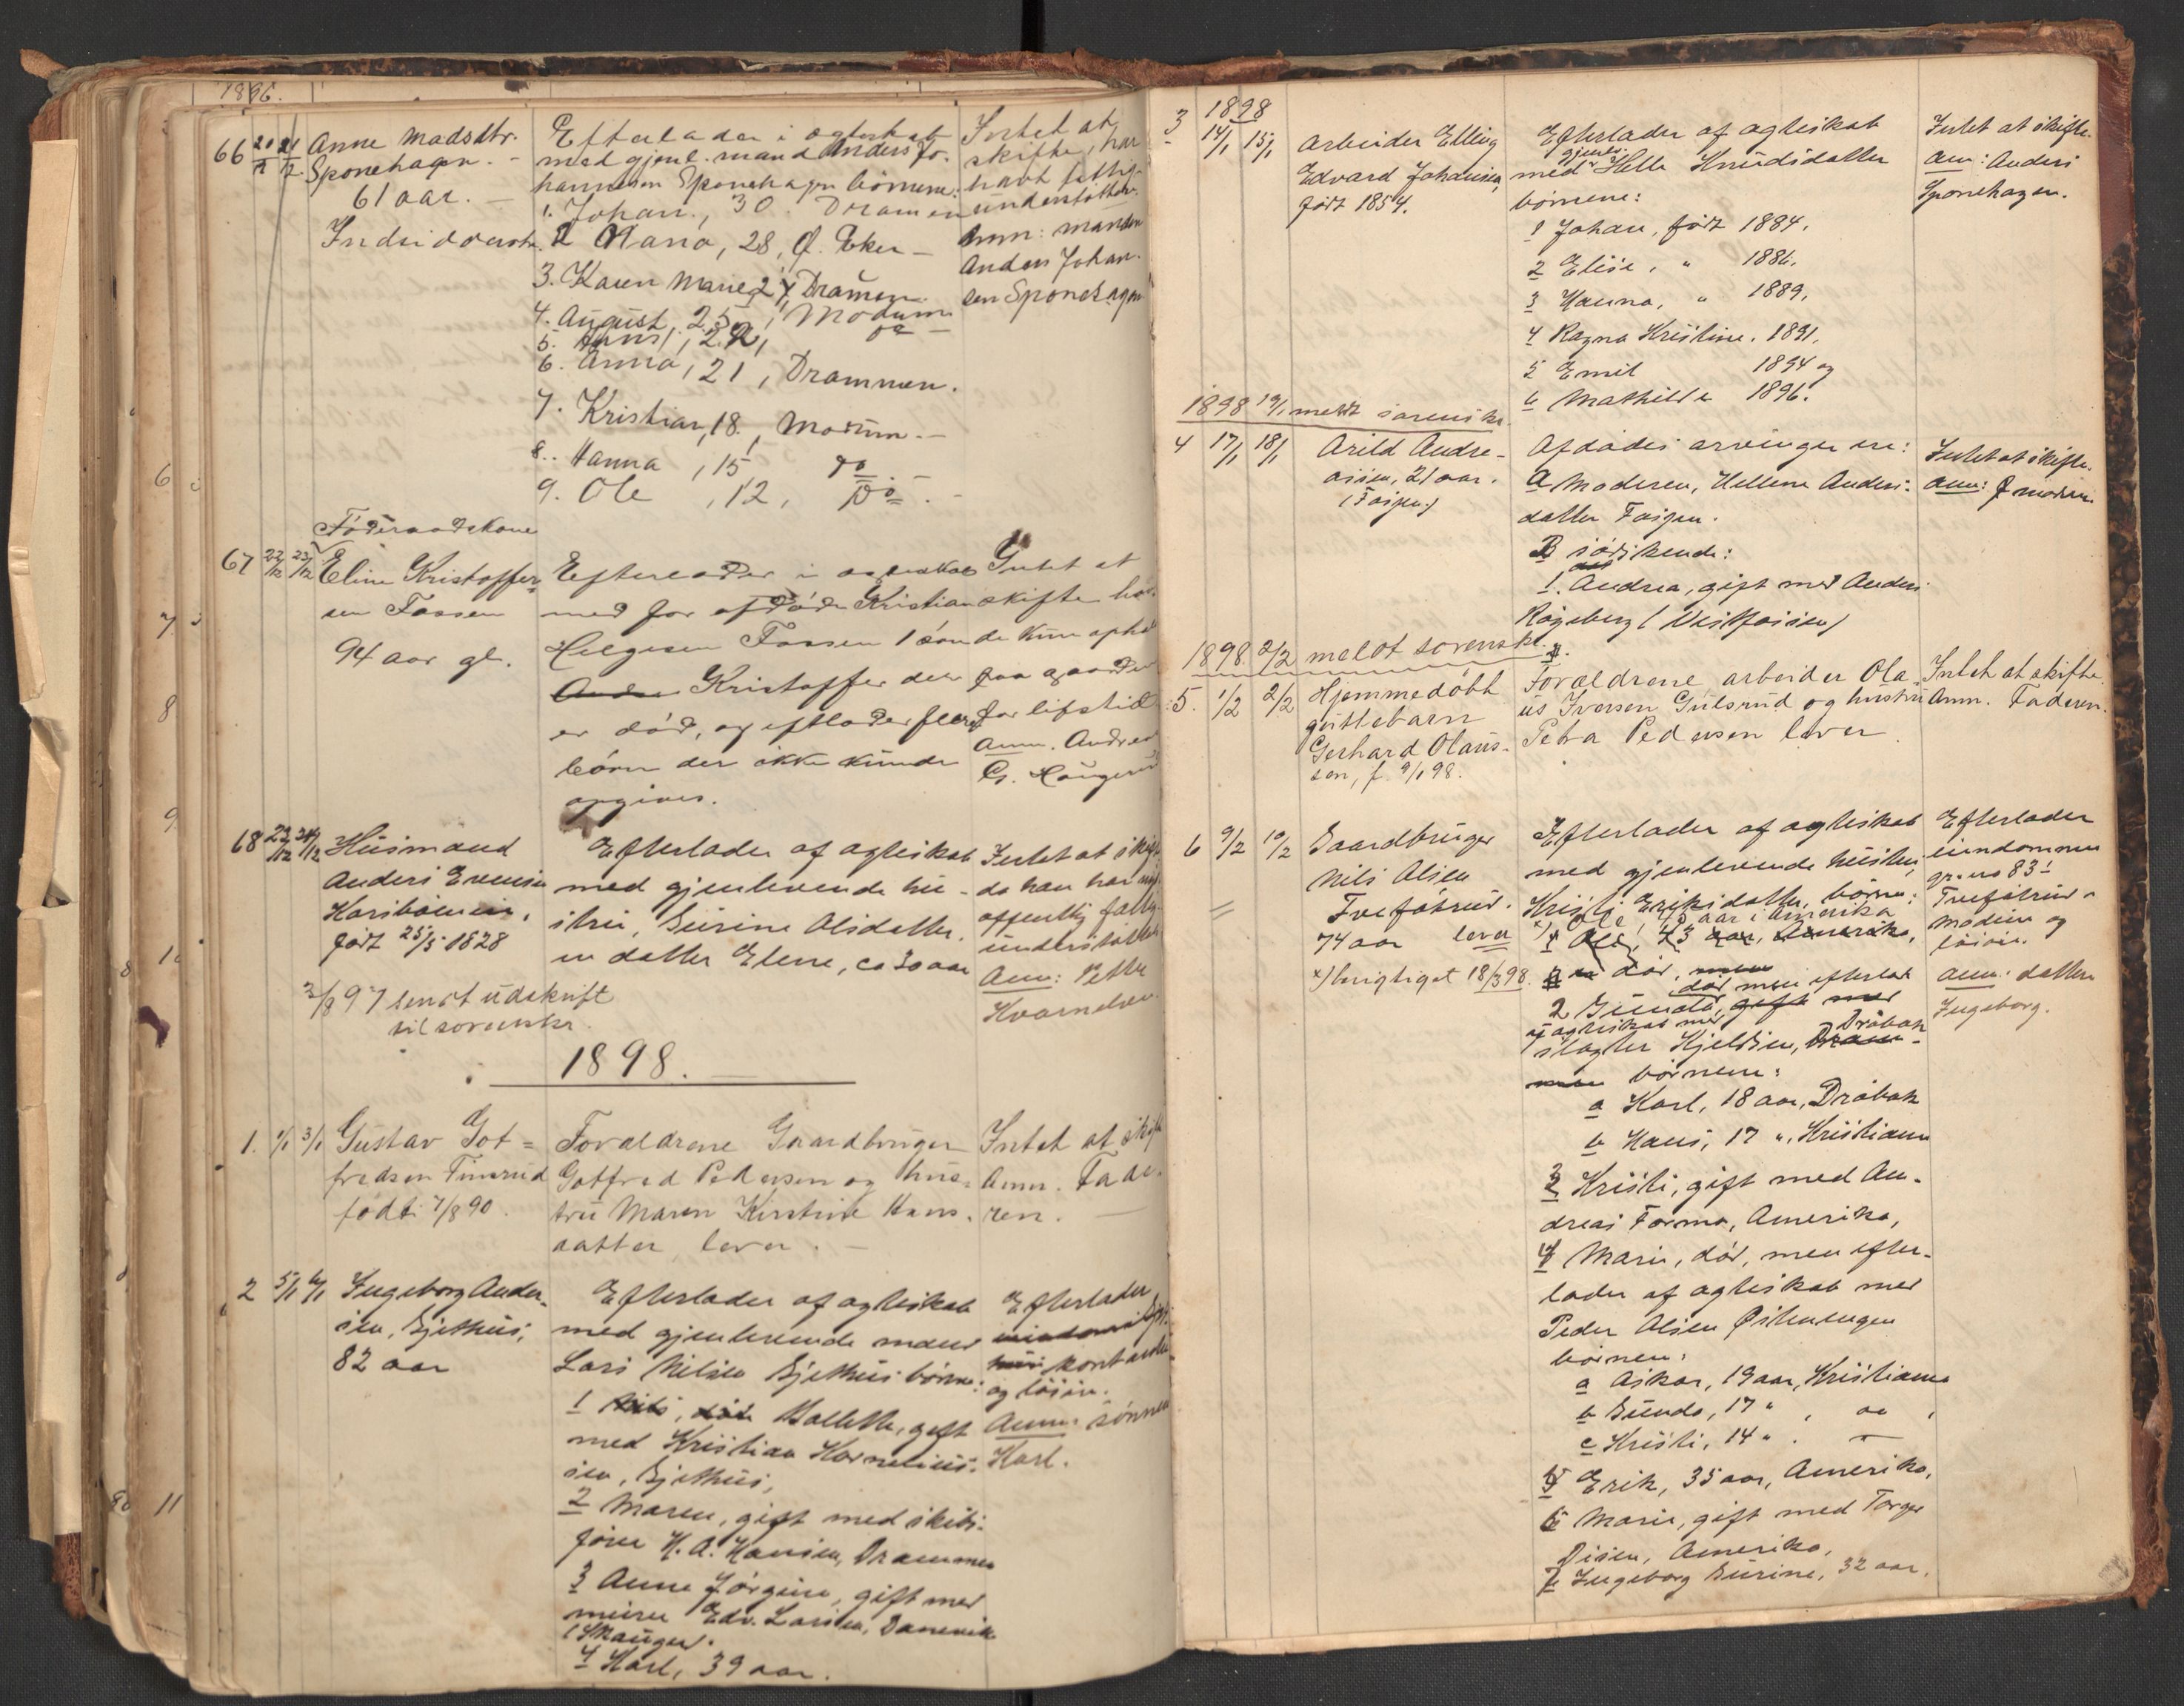 1896.
66 20/12 21/12 Anne Madsdtr.
Sponehagen. -
61 aar. -
Indsidderske.
Efterlader i ægteskab
med gjenl. mand Anders Jo-
hannesen Sponehagen børnene:
1. Johan, 30. Dramen
2 Olano, 28, Ø. Eker -
3. Karen Marie, 27, Dramen.
4. August, 25, Modum
5. Hans, 22, do -
6. Anna, 21, Drammen.
7. Kristian, 18, Modum. -
8.. Hanna, 15 do
9. Ole, 12, Do. -
Intet at
skifte, har
havt fattig-
understøttelse.
Anm: manden
Anders Johan-
sen Sponehagen
Føderaadskone
67 22/12 23/12 Eline Kristoffer-
sen Fossen
94 aar gl.
Efterlader i ægteskab
med for afdøde Kristian
Helgesen Fossen 1 søn
Kristoffer der
er død, og eftlader flere
børn der ikke kunde
opgives.
Intet at
skifte ha-
de kun ophold
paa gaarden
for lifstid
Anm. Andreas
G. Haugerud
68 23/12 24/12 Husmand
Anders Evensen
Karsbømein,
født 25/5 1828
Efterlader af ægteskab
med gjenlevende hu-
stru, Gurine Olsdatter.
en datter Elene, ca 30 aar
Intet at skifte
da han har
offentlig fattig-
understøttelse
Anm: Petter
Kvarnelven
3/8 97 sendt udskrift
til sorenskr.
1898.
1. 1/1 3/1 Gustav Got=
fredsen Finsrud
født 7/8 90.
Forældrene Gaardbruger
Gotfred Pedersen og hus-
tru Maren Kirstine Hans-
datter, lever. -
Intet at skifte
Anm. Fade-
ren. -
2 5/1 6/1 Ingeborg Ander-
sen, Gjethus,
82 aar
Efterlader af ægteskab
med gjenlevende mand
Lars Nilsen Gjethus børn:
1 Mallette, gift
med Kristian Kornelius-
sen, Gjethus,
2 Maren, gift med skibs-
fører H. A. Hansen, Drammen
3 Anne Jørgine, gift med
murer Edv. Larsen, Danevik
Skauger.
4 Karl, 39 aar.
Efterlader
og løsøre.
Anm: sønnen
Karl.
1898
3 14/1 15/1 Arbeider Elling
Edvard Johansen,
født 1854.
Efterlader af ægteskab
gjenlev.
med Helle Knudsdatter
børnene:
1 Johan, født 1884.
2 Elise, " 1886.
3 Hanna, " 1889.
4 Ragna Kristine. 1891.
5 Emil 1894 og
6 Mathilde 1896.
Intet at skifte.
Anm: Anders
Sponehagen.
1898 19/1 meldt sorenskr.
4 17/1 18/1 Arild Andre-
assen, 21 aar.
(Foigen)
Afdødes arvinger ere:
A Moderen, Hellene Anders-
datter Foigen.
B søskende:
1. Andrea, gift med Anders
Rogeberg (Vestfossen)
Intet at skifte.
Anm: moderen
1898. 2/2 meldt sorenskr.
5. 1/2 2/2 Hjemmedøbt
guttebarn
Gerhard Olaus-
sen, f. 9/1 98.
Forældrene arbeider Ola-
us Iversen Gulsrud og hustru
Petra Pedersen lever
Intet at skifte.
Anm. Faderen.
6 9/2 10/2 Gaardbruger
Nils Olsen
Tveføtrud.
74 aar
x) berigtiget 18/3 98.
Efterlader af ægteskab
med gjenlevende hustru,
Kristi Eriksdatter, børn:
x) Ole, 43 aar i Amerika lever
1 Ole, 43 aar, Amerika,
død,
2 Gunda, død, men efterlod
af ægteskab med Drøbak
slagter Kjeldsen,
børnene:
a Karl, 18 aar, Drøbak
b Hans, 17 ", Kristiania
3 Kristi, gift med An-
dreas Formo, Amerika,
4 Marie, død, men efter-
lader af ægteskab med
Peder Olsen Østenengen
børnene:
a Askar, 19 aar, Kristiania
b Gunda, 17 ", do,
c Kristi, 14 ".
5 Erik, 35 aar, Amerika,
6 Marie, gift med Torger
Disen, Amerika,
7 Ingeborg Gurine, 32 aar.
Efterlader
eiendommen
gr. no 83
Tveføtrud
Modum og
løsøre.
Anm: datteren
Ingeborg.